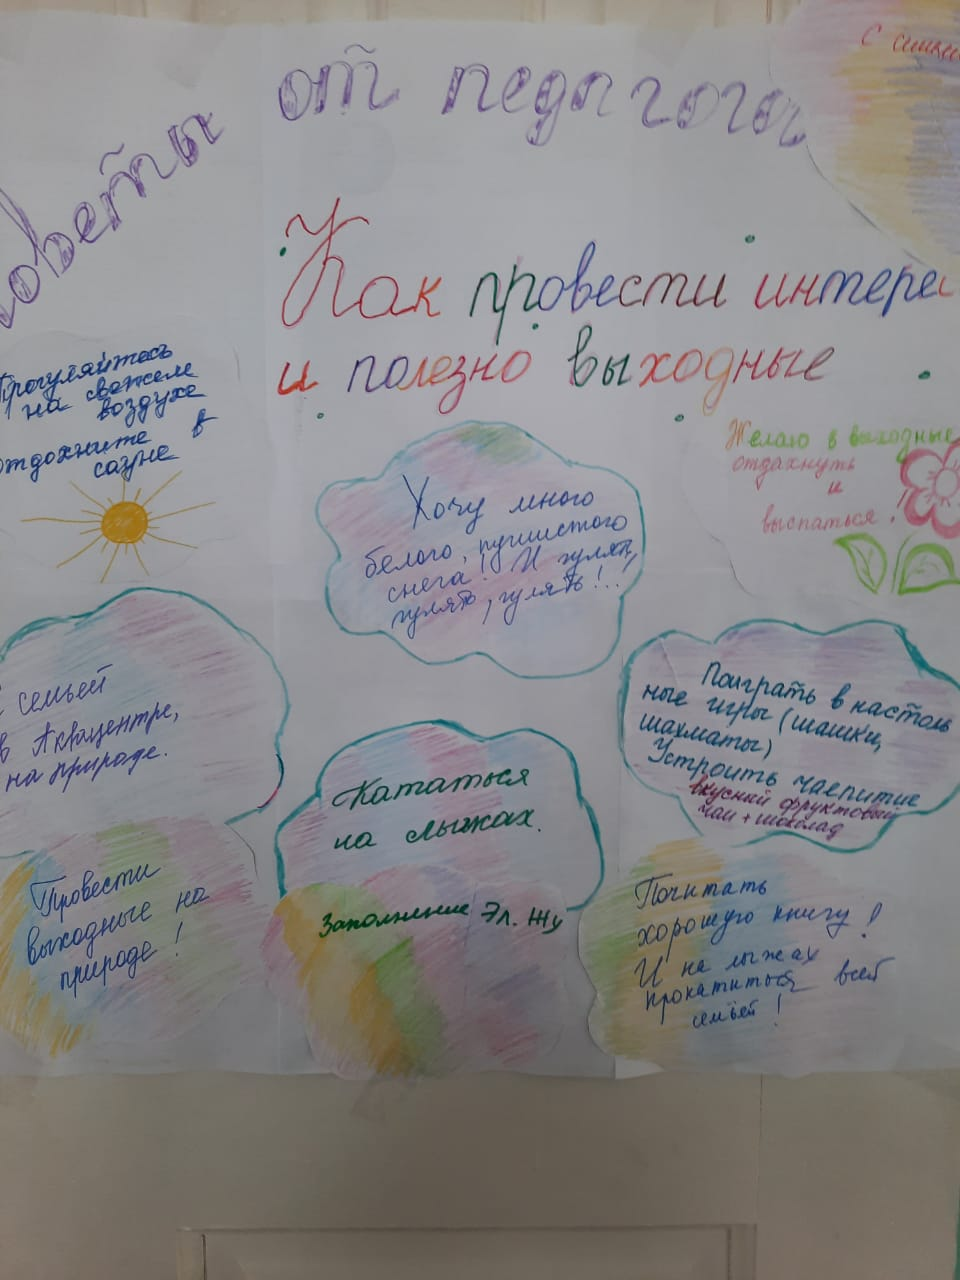 Советы от педагогов
С семьей
Как провести интерес
и полезно выходные
Прогуляйтесь
на свежем
воздухе
отдохните в
сауне
Хочу много
белого, пушистого
снега! И гулять,
гулять, гулять!..
Желаю в выходные
отдахнуть
и
выспаться!
С семьей
в Аквацентре,
на природе.
Кататься
на лыжах.
Поиграть в настоль
ные игры (шашки,
шахматы)
Устроить чаепитие
вкусный фруктовый
чай + шоколад
Провести
выходные на
природе!
Заполнение Эл. Жу
Почитать
хорошую книгу!
И на лыжах
прокатиться всей
семьёй!